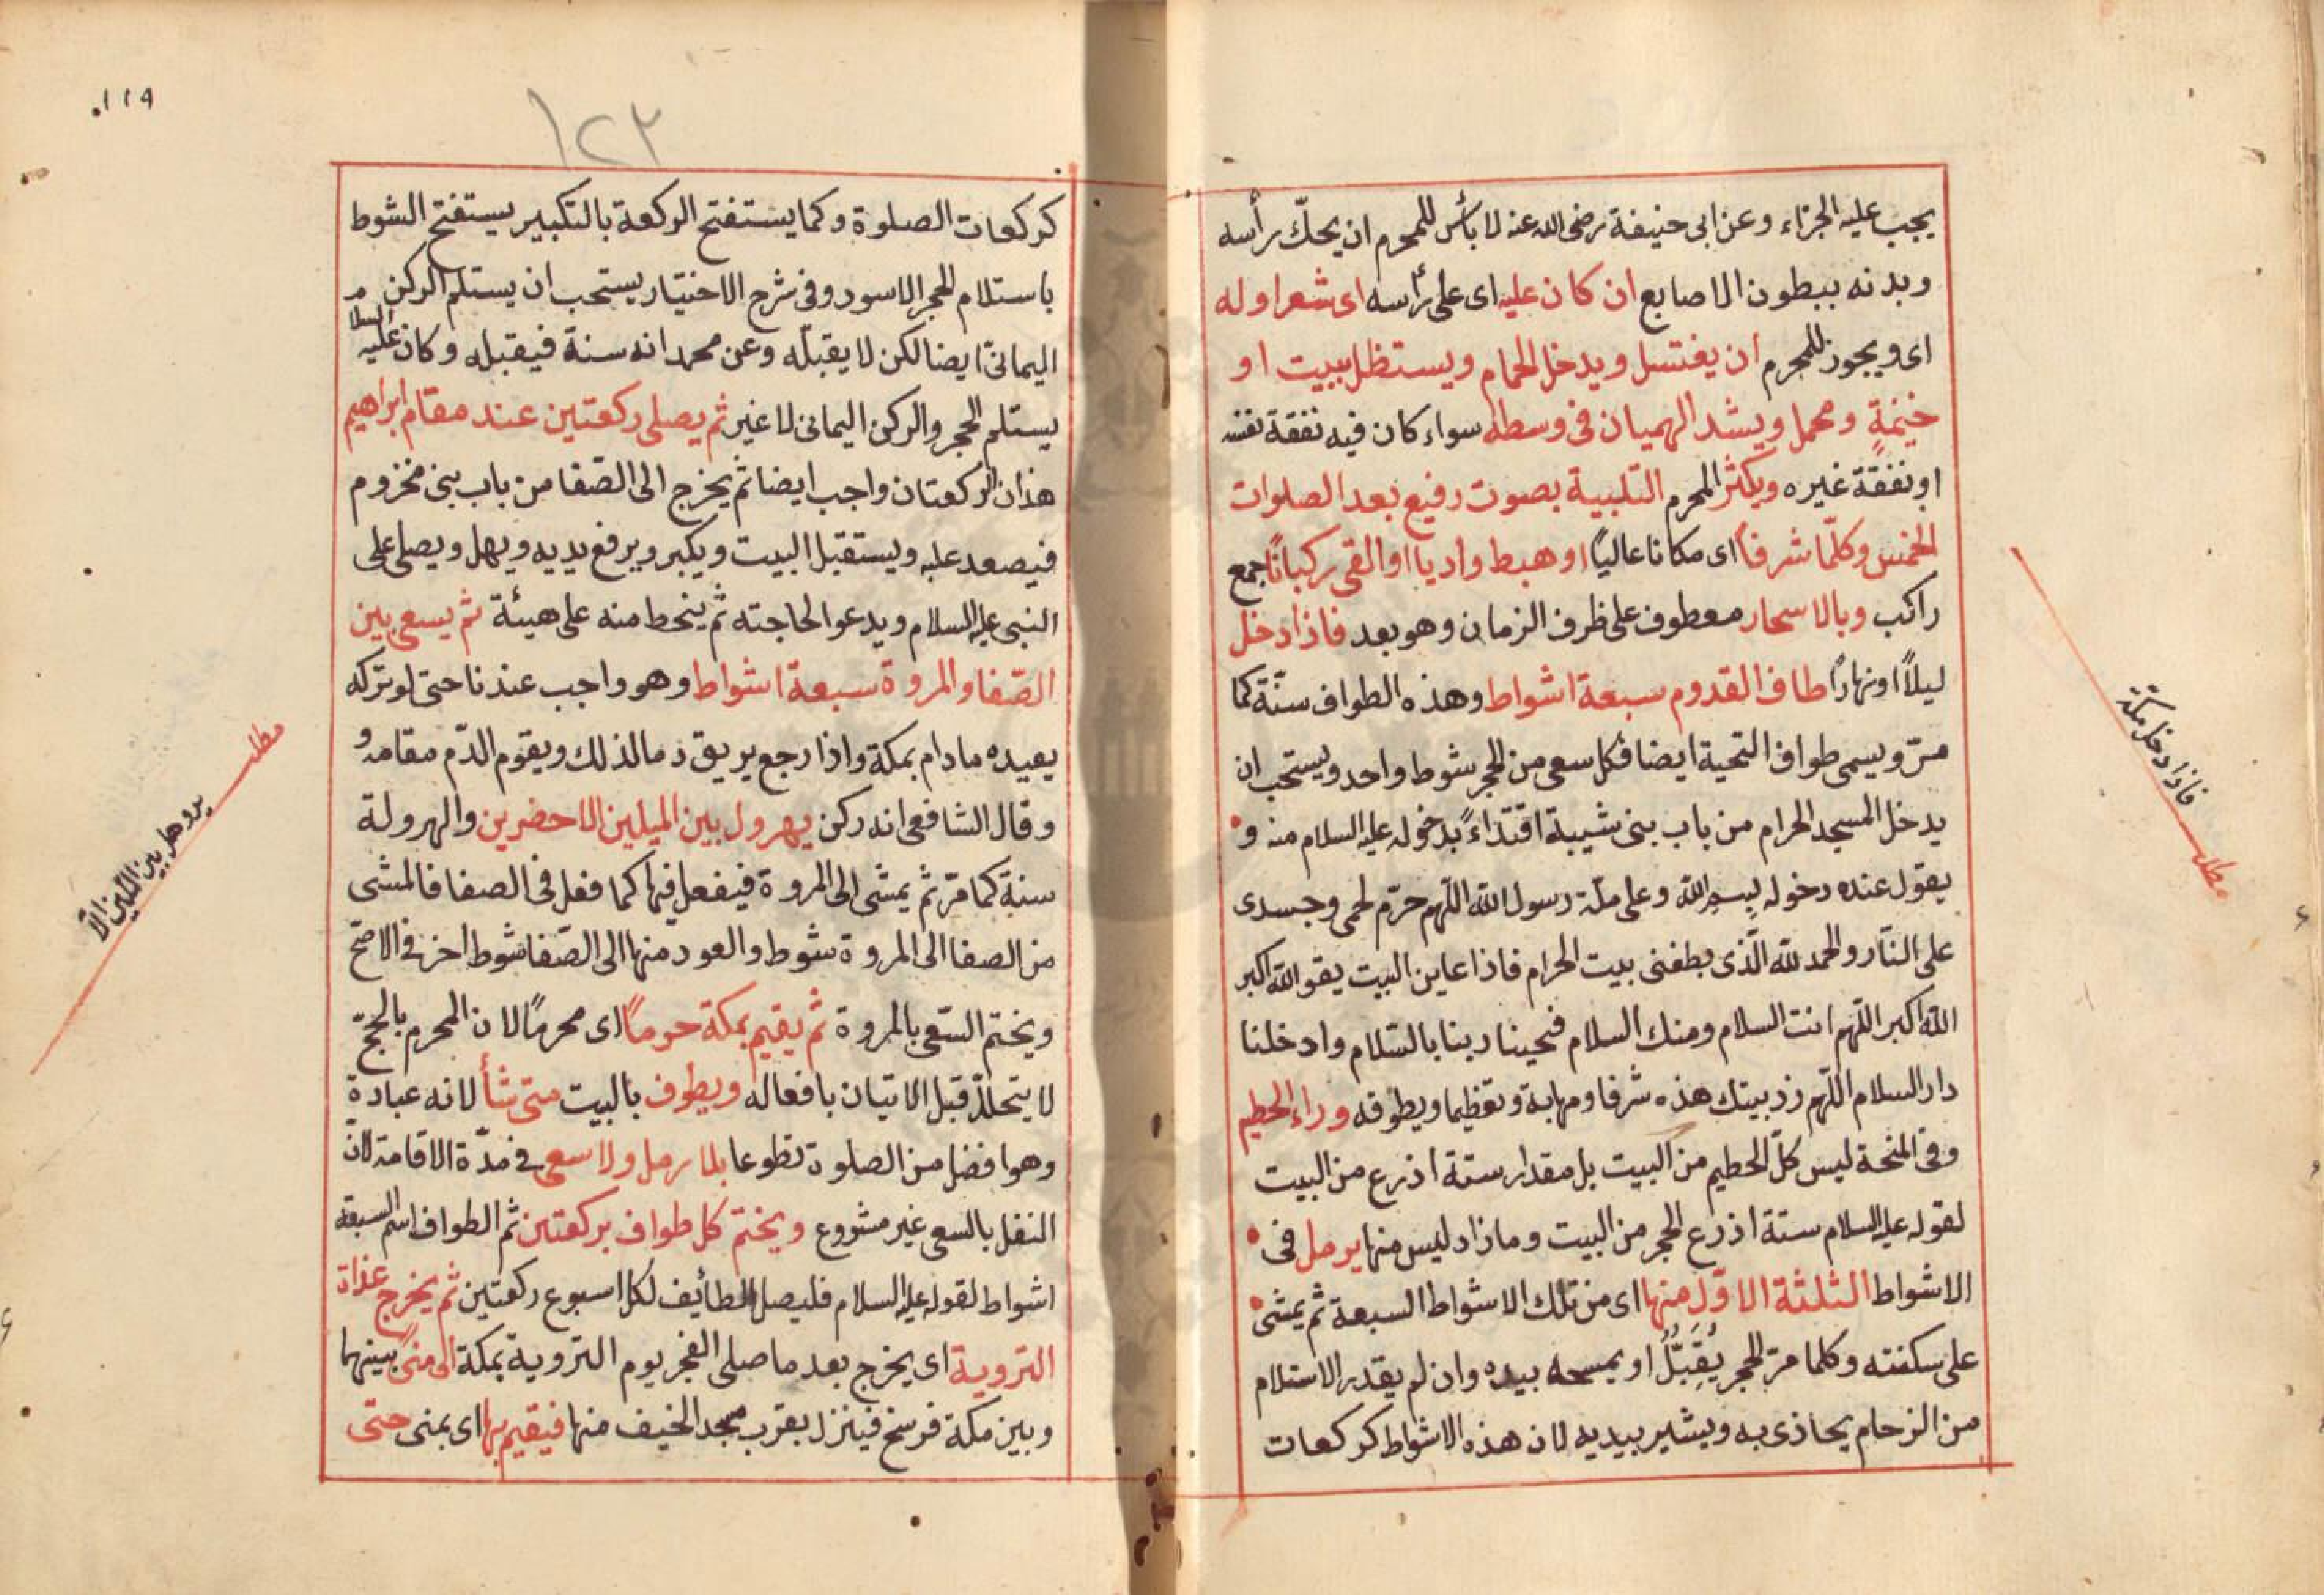 يجب عليه الجزاء وعن ابى حنيفة رضى الله عنه لا بأس للمحرم ان يحكّ رأسه
وبدنه ببطون الاصابع ان كان عليه اى على رأسه اى شعر اوله
اى ويجوز للمحرم ان يغتسل ويدخل الحمام ويستظل ببيت او
خيمةٍ ومحمل ويشد الهميان فى وسطه سواء كان فيه نفقة نفسه
او نفقة غيره ويكثر المحرم التلبية بصوت رفيع بعد الصلوات
الخمس وكلّما شرفاً اى مكانا عالياً او هبط واديا او القى ركباناً جمع
راكب وبالاسحار معطوف على ظرف الزمان وهو بعد فاذا دخل
ليلاً او نهاراً طاف القدوم سبعة اشواط وهذه الطواف سنّة كما
مرّ ويسمى طواف التحية ايضا فكل سعى من الحجر شوط واحد ويستحب ان
يدخل المسجد الحرام من باب بنى شيبة اقتداءً بدخوله عليه السلام منه و
يقول عنده دخوله بِسمِ الله وعلى ملّة رسول الله اللّهم حرّم لحمى وجسدى
على النّار والحمد لله الّذى بطفنى بيت الحرام فاذا عاين البيت يقو الله اكبر
الله اكبر اللّهم انت السلام ومنك السلام فحينا ربنا بالسّلام وادخلنا
دار السلام اللّهم زد بيتك هذه شرفا ومهابة وتعظيما ويطوفه وراء الحطيم
وفى المنحة ليس كلّ الحطيم من البيت بل مقدار ستة اذرع من البيت
لقوله عليه السلام ستة اذرع الحجر من البيت وما زاد ليس منها يرمل فى
الاشواط الثلثة الاوّلِ منها اى من تلك الاشواط السبعة ثم يمشى
على سكنته وكلما مرّ الحجر يُقَبِّلُ او يمسحه بيده وان لم يقدر الاستلام
من الزحام يحاذى به ويشير بيديه لان هذه الاشواط كركعات
فاذا دخل مكة
مطلب
١١٩
١٢٣
كركعات الصلوة وكما يستفتح الركعة بالتكبير يستفتح الشوط
باستلام الحجر الاسود وفى شرح الاختيار يستحب ان يستلم الركن
اليمانىّ ايضا لكن لا يقبلّه وعن محمد انه سنة فيقبله وكان عليه السلام
يستلم الحجر والركن اليمانى لا غير ثم يصلى ركعتين عند مقام ابراهيم
هذان الركعتان واجب ايضا ثم يخرج الى الصّفا من باب بنى مخزوم
فيصعد عليه ويستقبل البيت ويكبر ويرفع يديه ويهل ويصلى على
النبى عليه السلام ويدعو الحاجته ثم ينحط منه على هيئة ثم يسعى بين
الصّفا والمروة سبعة اشواط وهو واجب عندنا حتى لو تركه
يعيده ما دام بمكة واذا رجع يريق دما لذلك ويقوم الدّم مقامه و
وقال الشافعى انه ركن يهرول بين الميلين الاخضرين والهرولة
سنة كما مرّ ثم يمشى الى المروة فيفعل فيها كما فعل فى الصفا فالمشى
من الصفا الى المروة شوط والعود منها الى الصّفا شوط اخر فى الاصحّ
ويختم السّعى بالمروة ثم يقيم بمكة حرماً اى محرماً لان المحرم بالحجّ
لا يتحللّ قبل الاتيان بافعاله ويطوف بالبيت متى شأ لانه عبادة
وهو افضل من الصلوة تطوعا بلا رمل ولا سعى فى مدّة الاقامة لان
النفل بالسعى غير مشروع ويختم كل طواف بركعتين ثم الطواف اسم السبعة
اشواط لقوله عليه السلام فليصل الطائف لكل اسبوع ركعتين ثم يخرج غداة
التروية اى يخرج بعد ما صلى الفجر يوم التروية بمكة الى منىً بينهما
وبين مكة فرسخ فينزل بقرب مسجد الخيف منها فيقيم بها اى بمنى حتى
مطلب